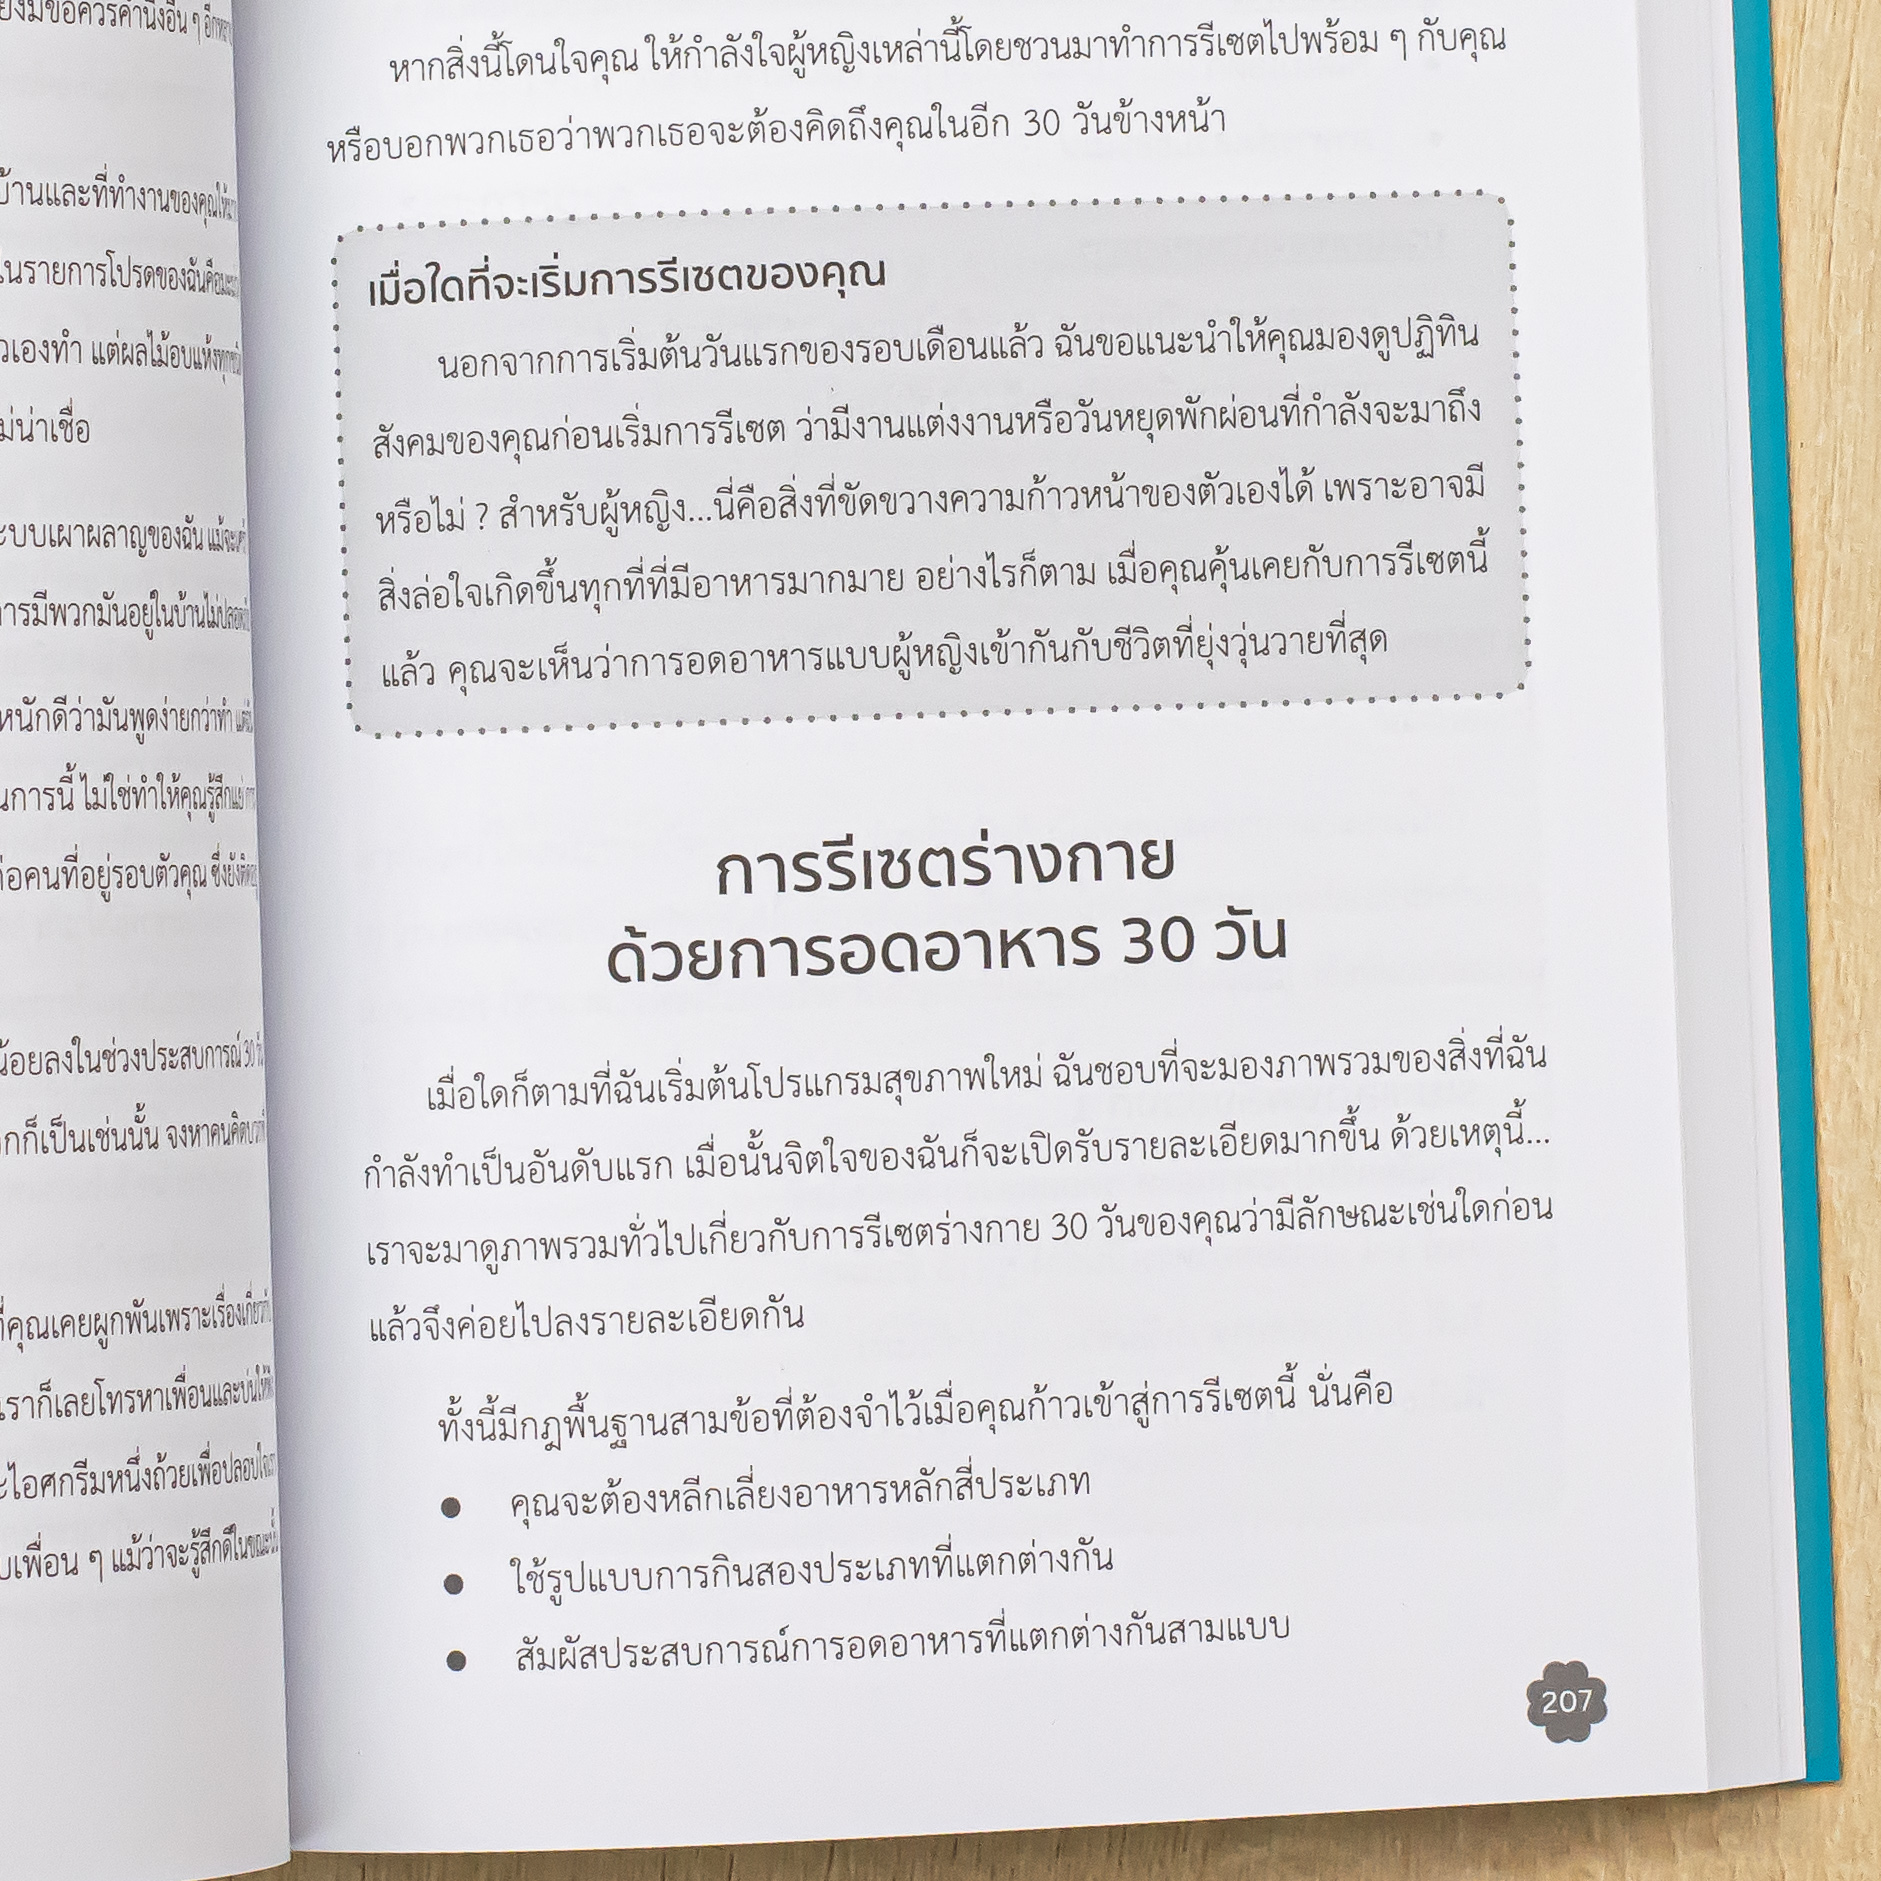 บ้านและที่ทำงานของคุณให้
ในรายการโปรดของฉันคือ
แต่ผลไม้อบแห้งทุก
ไม่น่าเชื่อ
ระบบเผาผลาญของฉัน
การมีพวกมันอยู่ในบ้านไม่
หนักดีว่ามันพูดง่ายกว่าทำ
การนี้ ไม่ใช่ทำให้คุณรู้สึกแย่
ต่อคนที่อยู่รอบตัวคุณ
น้อยลงในช่วงประสบการณ์ 30
ก็เป็นเช่นนั้น จงหาคนคิดบวก
ที่คุณเคยผูกพันเพราะเรื่องเกี่ยวกับ
เราก็เลยโทรหาเพื่อนและบ่นให้
ไอศกรีมหนึ่งถ้วยเพื่อปลอบใจ
เพื่อน ๆ แม้ว่าจะรู้สึกดีในขณะนั้น
หากสิ่งนี้โดนใจคุณ ให้กำลังใจผู้หญิงเหล่านี้โดยชวนมาทำการรีเซตไปพร้อม ๆ กับคุณ
หรือบอกพวกเธอว่าพวกเธอจะต้องคิดถึงคุณในอีก 30 วันข้างหน้า
เมื่อใดที่จะเริ่มการรีเซตของคุณ
นอกจากการเริ่มต้นวันแรกของรอบเดือนแล้ว ฉันขอแนะนำให้คุณมองดูปฏิทิน
สังคมของคุณก่อนเริ่มการรีเซต ว่ามีงานแต่งงานหรือวันหยุดพักผ่อนที่กำลังจะมาถึง
หรือไม่ ? สำหรับผู้หญิง...นี่คือสิ่งที่ขัดขวางความก้าวหน้าของตัวเองได้ เพราะอาจมี
สิ่งล่อใจเกิดขึ้นทุกที่ที่มีอาหารมากมาย อย่างไรก็ตาม เมื่อคุณคุ้นเคยกับการรีเซตนี้
แล้ว คุณจะเห็นว่าการอดอาหารแบบผู้หญิงเข้ากันกับชีวิตที่ยุ่งวุ่นวายที่สุด
การรีเซตร่างกาย
ด้วยการอดอาหาร 30 วัน
เมื่อใดก็ตามที่ฉันเริ่มต้นโปรแกรมสุขภาพใหม่ ฉันชอบที่จะมองภาพรวมของสิ่งที่ฉัน
กำลังทำเป็นอันดับแรก เมื่อนั้นจิตใจของฉันก็จะเปิดรับรายละเอียดมากขึ้น ด้วยเหตุนี้...
เราจะมาดูภาพรวมทั่วไปเกี่ยวกับการรีเซตร่างกาย 30 วันของคุณว่ามีลักษณะเช่นใดก่อน
แล้วจึงค่อยไปลงรายละเอียดกัน
ทั้งนี้มีกฎพื้นฐานสามข้อที่ต้องจำไว้เมื่อคุณก้าวเข้าสู่การรีเซตนี้ นั่นคือ
● คุณจะต้องหลีกเลี่ยงอาหารหลักสี่ประเภท
● ใช้รูปแบบการกินสองประเภทที่แตกต่างกัน
● สัมผัสประสบการณ์การอดอาหารที่แตกต่างกันสามแบบ
207